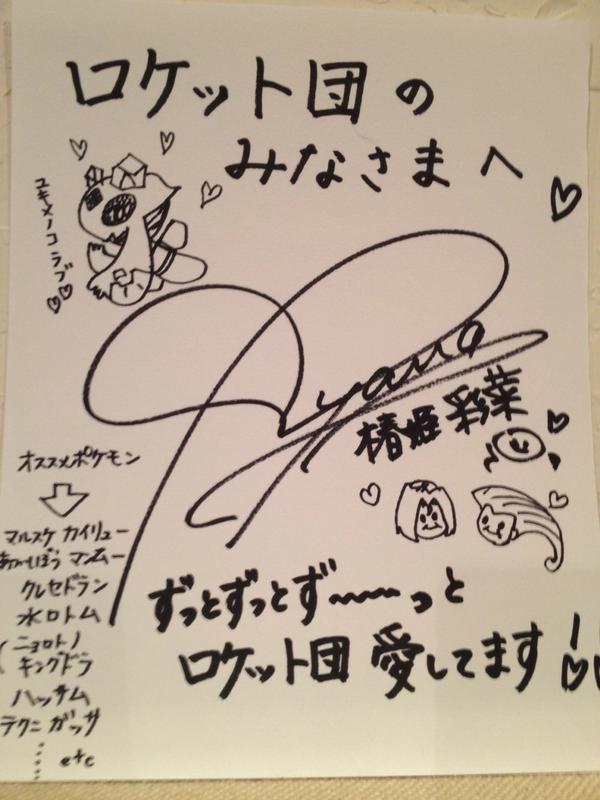 ロケット団の
みなさまへ
ユキメノコラブ
Ayana
椿姫彩菜
オススメポケモン
マルスケ カイリュー
あついしぼう マンムー
クレセドラン
水ロトム
ニョロトノ
キングドラ
ハッサム
テクニ ガッサ
etc
ずっとずっとず〜〜っと
ロケット団 愛してます!